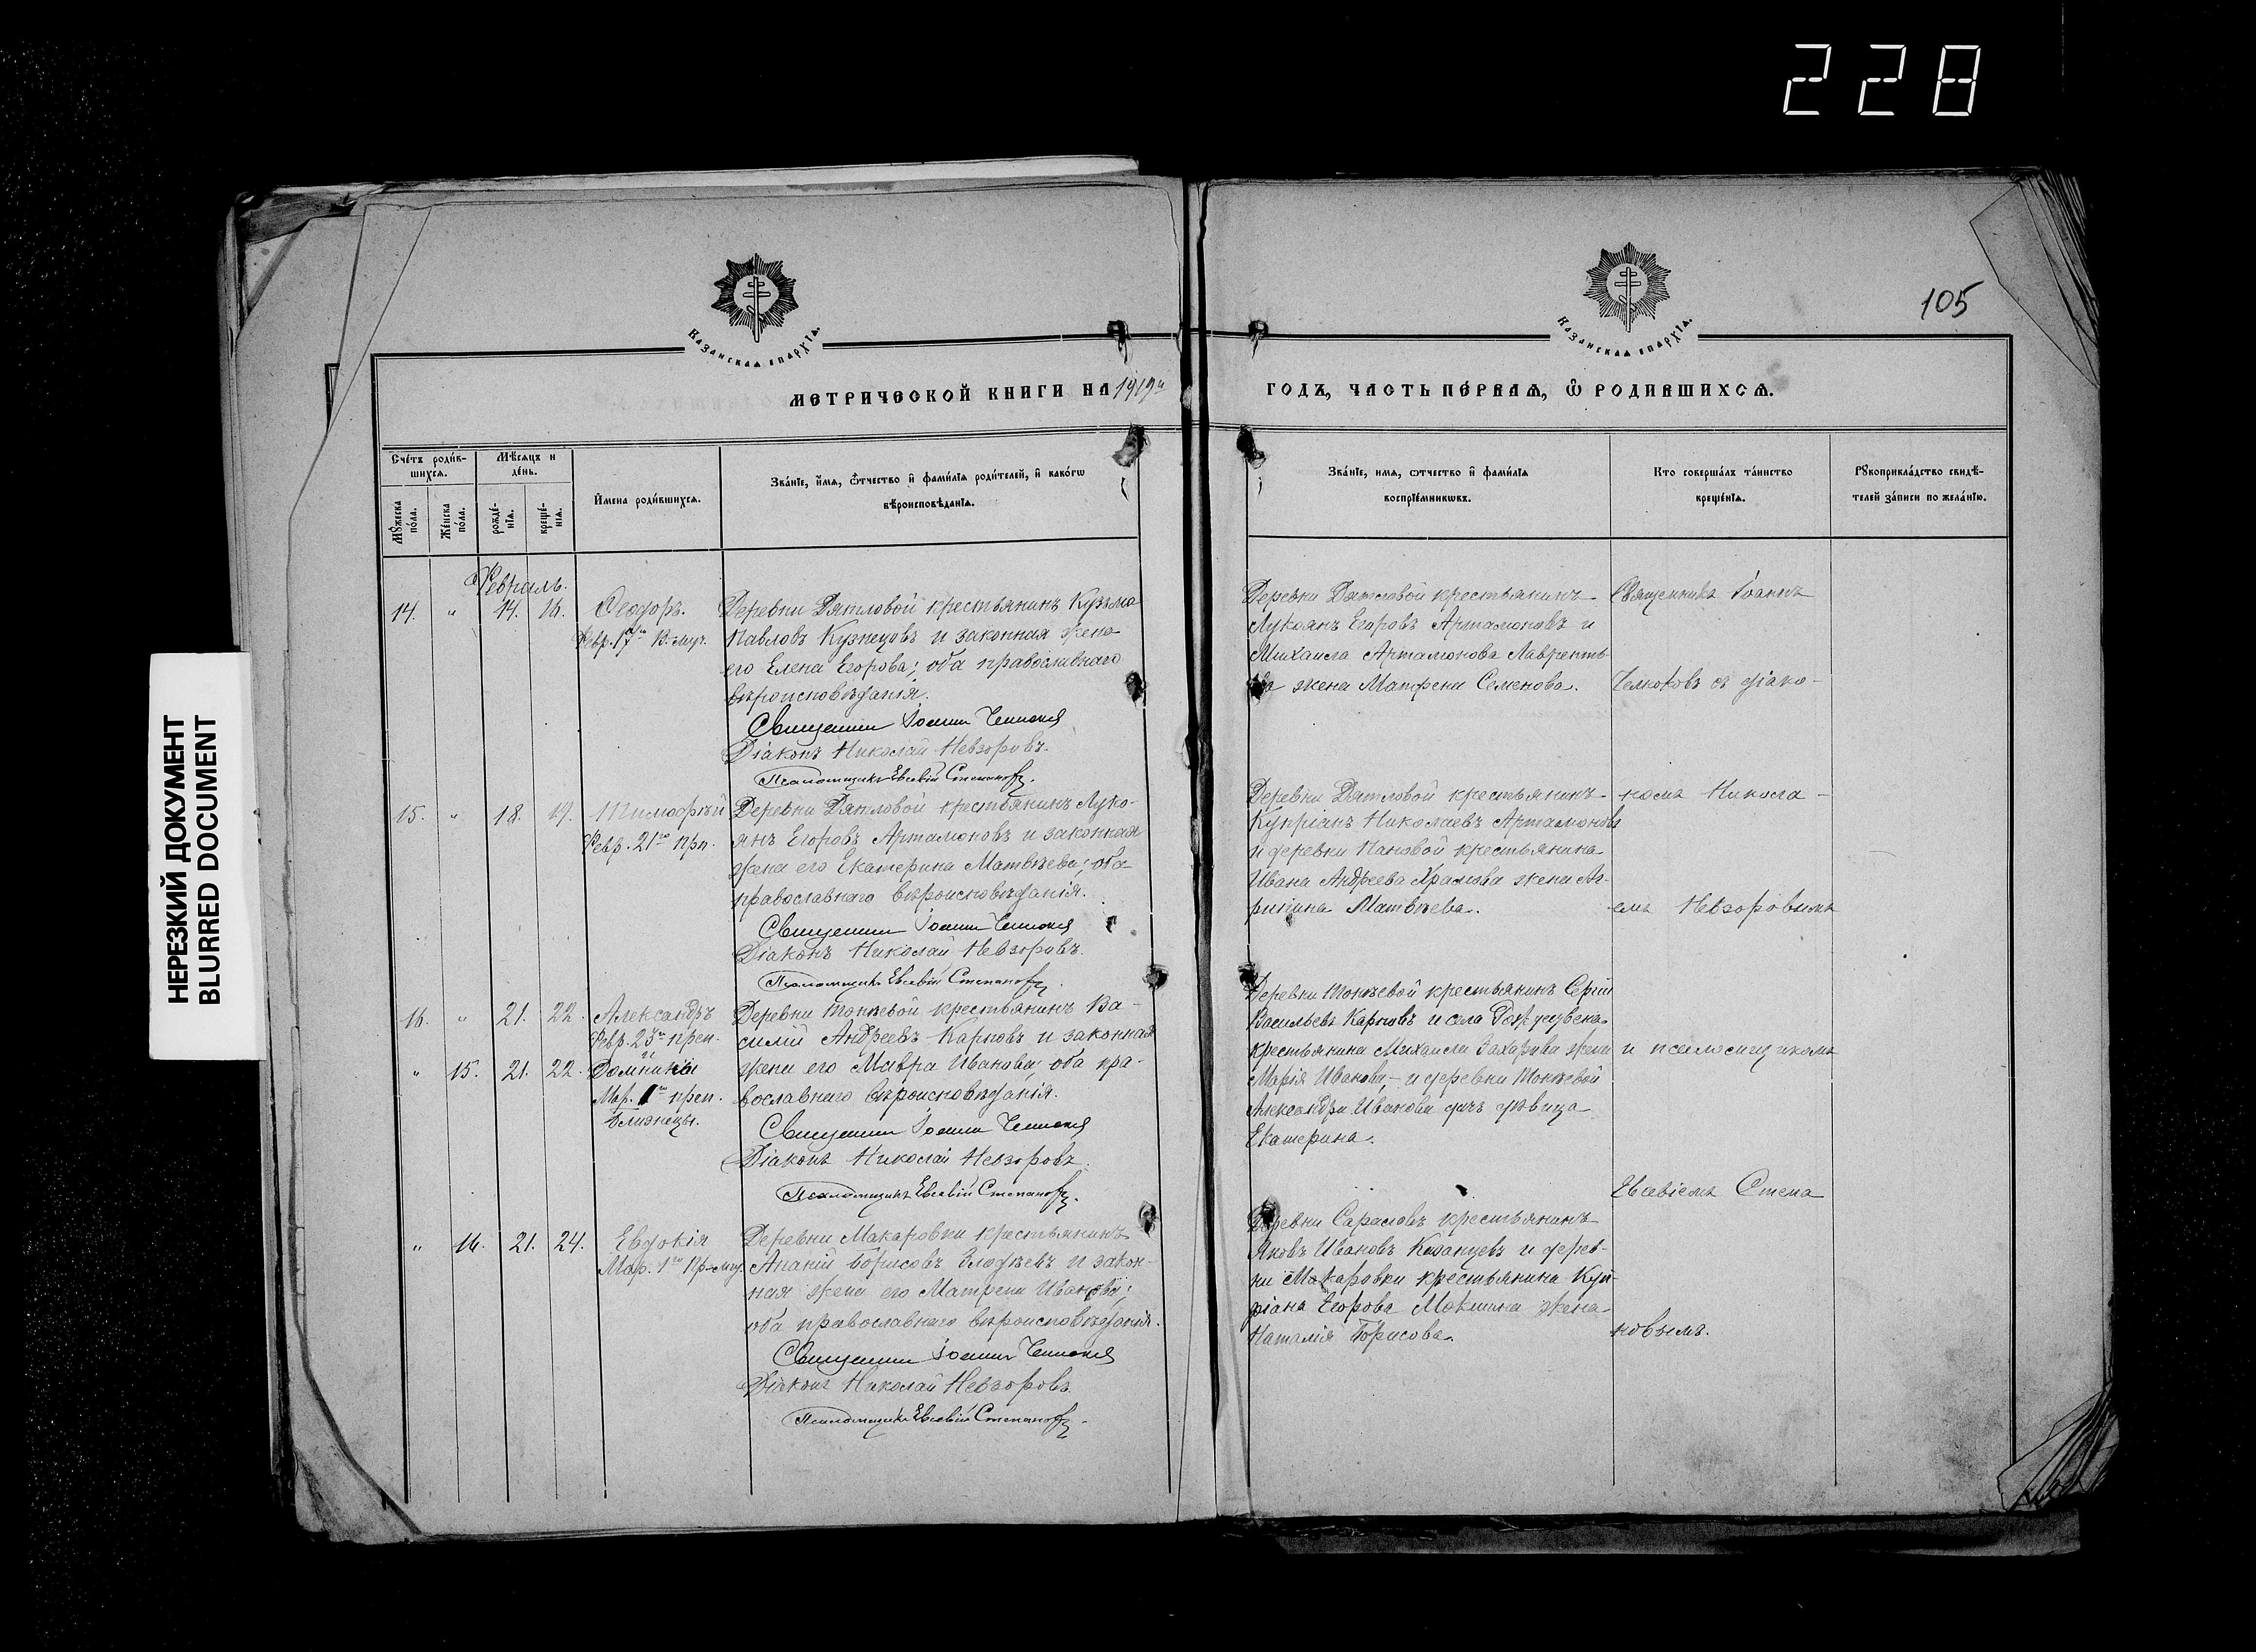 228
НЕРЕЗКИЙ ДОКУМЕНТ
BLURRED DOCUMENT
105
Казанская епархїѧ.
Казанская епархїѧ.
МЕТРИЧЕСКОЙ КНИГИ НА 1919й
ГОДЪ, ЧАСТЬ ПЕ́РВАѦ, Ѽ РОДИВШИХСѦ.
Сче́тъ роди́в-
шихсѧ.
Мѣ́сѧцъ и
де́нь.
Мꙋ́жеска по́ла.
Же́нска по́ла.
рожде́-нїѧ.
креще́-нїѧ.
И҆мена роди́вшихсѧ.
Зва́нїе, и҆́мѧ, ѻ҆́тчество и҆ фами́лїѧ роди́телей, и҆ како́гѡ
вѣроисповѣ́данїѧ.
Зва́нїе, имѧ, ѻтчество и҆ фами́лїѧ
воспрїе́мникѡвъ.
Кто соверша́лъ та́инство
креще́нїѧ.
Рꙋкоприкла́дство свидѣ́-
телей за́писи по жела́нїю.
Февраль.
14. " 14. 16. Ѳеодоръ.
Февр. 17го В. муч.
Деревни Дятловой крестьянинъ Кузьма
Павловъ Кузнецовъ и законная жена
его Елена Егорова; оба православнаго
вѣроисповѣданія.
Священникъ Іоаннъ
Діаконъ Николай Невзоровъ.
Псаломщикъ Евсевій Степановъ.
Деревни Дятловой крестьянинъ
Лукоянъ Егоровъ Артамоновъ и
Михаила Артамонова Лавренть-
ва жена Матрена Семенова.
Священникъ Іоаннъ
съ діако-
15. " 18. 19. Тимоѳей
Февр. 21го прп.
Деревни Дятловой крестьянинъ Луко-
янъ Егоровъ Артамоновъ и законная
жена его Екатерина Матвѣева; оба
православнаго вѣроисповѣданія.
Священникъ Іоаннъ
Діаконъ Николай Невзоровъ.
Псаломщикъ Евсевій Степановъ.
Деревни Дятловой крестьянинъ
Купріанъ Николаевъ Артамоновъ
и деревни Пановой крестьянина
Ивана Андреева Храмова жена Аг-
рипина Матвѣева.
номъ Никола-
емъ Невзоровымъ
16. " 21. 22. Александръ
Февр. 23го преп.
и
" 15. 21. 22. Домникія
Мар. 1го преп.
близнецы.
Деревни Тонѣевой крестьянинъ Ва-
силій Андреевъ Карповъ и законная
жена его Мавра Иванова; оба пра-
вославнаго вѣроисповѣданія.
Священникъ Іоаннъ
Діаконъ Николай Невзоровъ.
Псаломщикъ Евсевій Степановъ.
Деревни Тонѣевой крестьянинъ Сергій
Васильевъ Карповъ и села
крестьянина Михаила Захарова жена
Марія Иванова, – и деревни Тонѣевой
Александра Иванова дочь дѣвица
Екатерина.
и псаломщикомъ
Евсевіемъ Степа
" 16. 21. 24. Евдокія
Мар. 1го Пр-муч.
Деревни Макаровки крестьянинъ
Ананій Борисовъ Злодѣевъ и закон-
ная жена его Матрена Иванова;
оба православнаго вѣроисповѣданія.
Священникъ Іоаннъ
Діаконъ Николай Невзоровъ
Псаломщикъ Евсевій Степановъ.
Деревни крестьянинъ
Яковъ Ивановъ Казанцевъ и дерев-
ни Макаровки крестьянина Куп-
ріана Егорова Мокшина жена
Наталія Борисова.
новымъ.